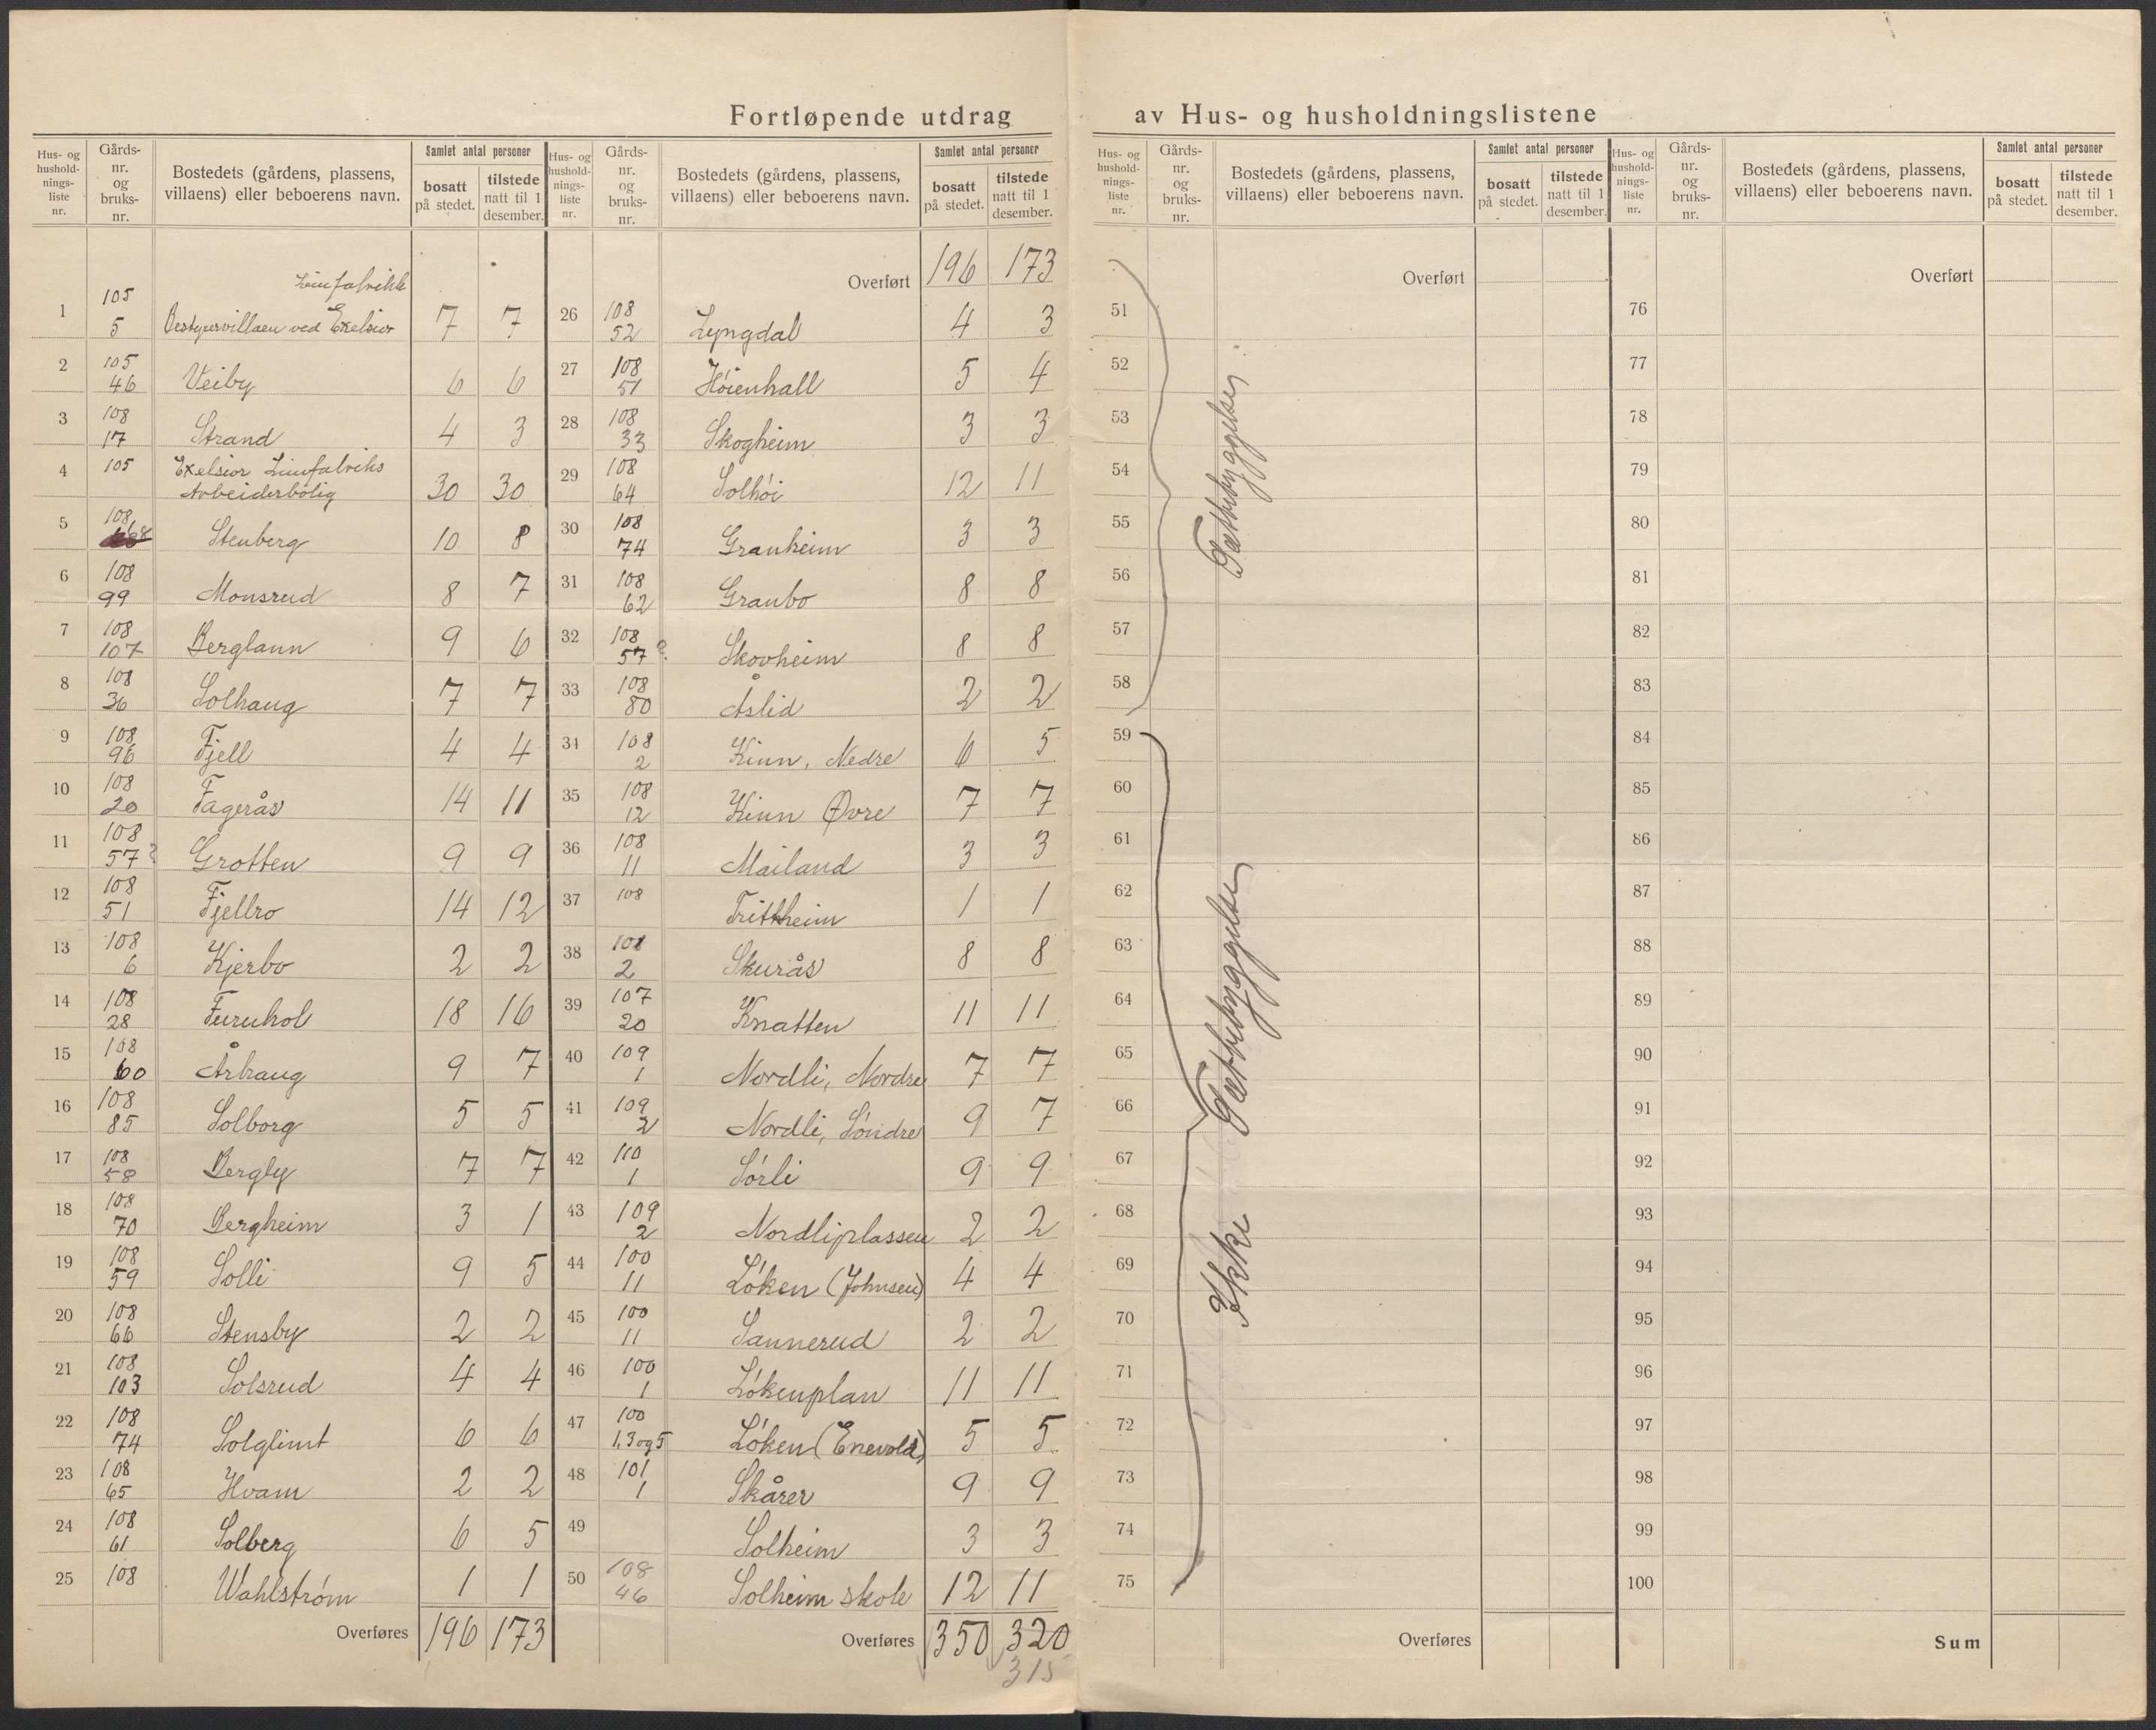 Fortløpende utdrag av Hus- og husholdningslistene
Hus- og hushold-nings-liste nr.
Gårds-nr. og bruks-nr.
Bostedets (gårdens, plassens, villaens) eller beboerens navn.
Samlet antal personer
bosatt på stedet.
tilstede natt til 1 desember.
Limfabrikk
1 105 5 Bestyrervillaen ved Exelsior 7 7
2 105 46 Veiby 6 6
3 108 17 Strand 4 3
4 105 Exelsior Limfabriks
Arbeiderbolig 30 30
5 108 68 Stenberg 10 8
6 108 99 Monsrud 8 7
7 108 107 Berglann 9 6
8 108 36 Solhaug 7 7
9 108 96 Fjell 4 4
10 108 20 Fagerås 14 11
11 108 57? Grotten 9 9
12 108 51 Fjellro 14 12
13 108 6 Kjerbo 2 2
14 108 28 Furuhol 18 16
15 108 60 Århaug 9 7
16 108 85 Solborg 5 5
17 108 58 Bergly 7 7
18 108 70 Bergheim 3 1
19 108 59 Solli 9 5
20 108 66 Stensby 2 2
21 108 103 Solsrud 4 4
22 108 74 Solglimt 6 6
23 108 65 Hvam 2 2
24 108 61 Solberg 6 5
25 108 Wahlstrøm 1 1
Overføres 196 173
Hus- og hushold-nings-liste nr.
Gårds-nr. og bruks-nr.
Bostedets (gårdens, plassens, villaens) eller beboerens navn.
Samlet antal personer
bosatt på stedet.
tilstede natt til 1 desember.
Overført 196 173
26 108 52 Lyngdal 4 3
27 108 51 Høienhall 5 4
28 108 33 Skogheim 3 3
29 108 64 Solhøi 12 11
30 108 74 Granheim 3 3
31 108 62 Granbo 8 8
32 108 57? Skovheim 8 8
33 108 80 Åslid 2 2
34 108 2 Kinn, Nedre 6 5
35 108 12 Kinn Øvre 7 7
36 108 11 Mailand 3 3
37 108 Trittheim 1 1
38 108 2 Skurås 8 8
39 107 20 Knatten 11 11
40 109 1 Nordli, Nordre 7 7
41 109 2 Nordli, Søndre 9 7
42 110 1 Sørli 9 9
43 109 2 Nordliplassen 2 2
44 100 11 Løken (Johnsen) 4 4
45 100 11 Sannerud 2 2
46 100 1 Løkenplan 11 11
47 100 1,3 og 5 Løken (Enevold) 5 5
48 101 1 Skårer 9 9
49 Solheim 3 3
50 108 46 Solheim skole 12 11
Overføres 350 320
315
Hus- og hushold-nings-liste nr.
Gårds-nr. og bruks-nr.
Bostedets (gårdens, plassens, villaens) eller beboerens navn.
Samlet antal personer
bosatt på stedet.
tilstede natt til 1 desember.
Overført
51
52
53
54
55
56
57
58
Tættbebyggelse
59
60
61
62
63
64
65
66
67
68
69
70
71
72
73
74
75
Ikke Tættbebyggelse
Overføres
Hus- og hushold-nings-liste nr.
Gårds-nr. og bruks-nr.
Bostedets (gårdens, plassens, villaens) eller beboerens navn.
Samlet antal personer
bosatt på stedet.
tilstede natt til 1 desember.
Overført
76
77
78
79
80
81
82
83
84
85
86
87
88
89
90
91
92
93
94
95
96
97
98
99
100
Sum